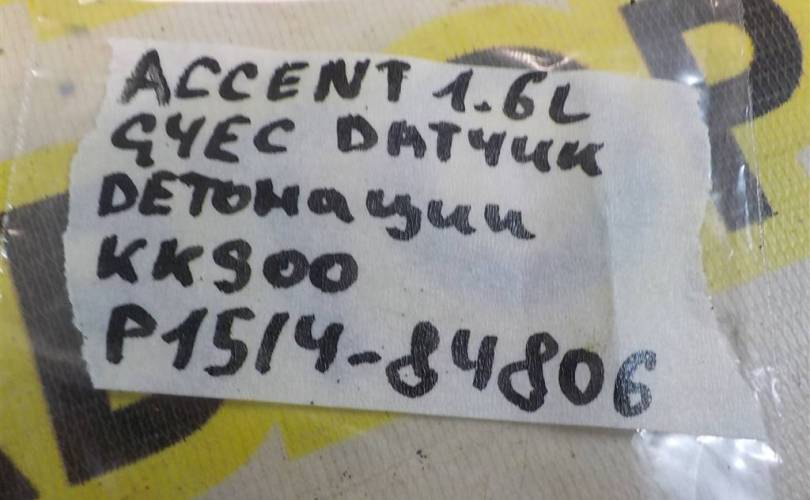 ACCENT 1.6L
G4EC DATЧИК
DETOНАЦИИ
KK900
P15/4-84806